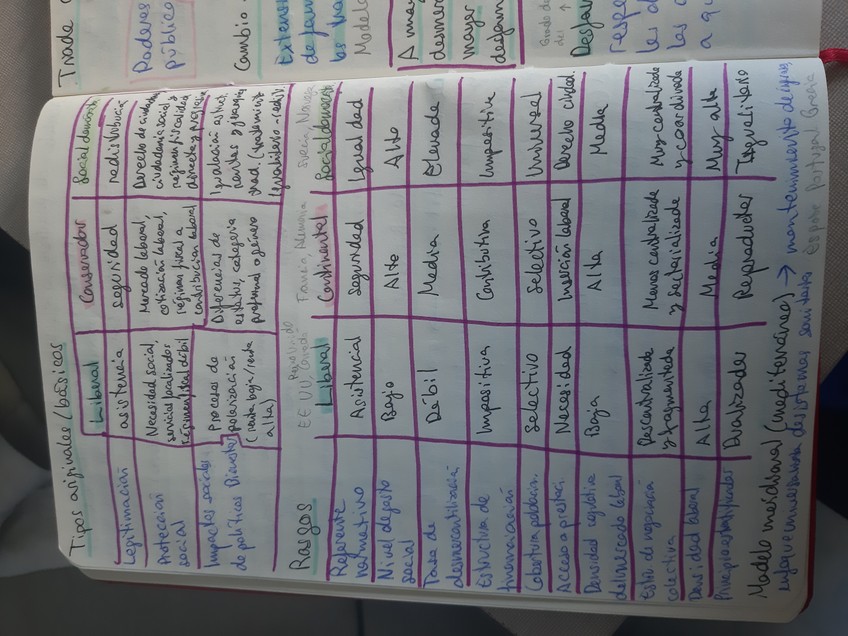 Tipos originales/básicos
Liberal Conservador Socialdemócrata
Legitimación asistencia seguridad redistribución
Protección social
Necesidad social, servicios localizados régimen fiscal débil
Mercado laboral, cotización laboral, régimen fiscal a contribución laboral
Derecho de ciudadanía
ciudadanía social,
régimen fiscalidad
directa y progresiva
Impactos sociales de políticas Bienestar
Procesos de polarización (renta baja/renta alta)
Diferencias de estatus, categoría profesional o género
Igualación
Rasgos
EE UU, Canadá Reino Unido
Francia, Alemania
Suecia, Noruega
Liberal Continental Socialdemócrata
Referente normativo Asistencial Seguridad Igualdad
Nivel de gasto social Bajo Alto Alto
Tasa de desmercantilización Débil Media Elevada
Estructura de financiación Impositiva Contributiva Impositiva
Cobertura población Selectivo Selectivo Universal
Acceso a prestaci. Necesidad Inserción laboral Derecho ciudad.
Densidad regulativa del mercado laboral Baja Alta Media
Estilo de negociación colectiva
Descentralizada y fragmentada
Menos centralizada y sectorializada
Muy centralizada y coordinada
Densidad laboral Alta Media Muy alta
Principio estratificador Dualizador Reproductor Igualitario
Modelo meridional (mediterráneo) → mantenimiento de ingresos
enfoque universalista de sistemas sanitarios España Portugal Grecia
Trade
Poderes
público
Cambio
Extens
de fam
Modelo
A mayo
desmer
mayor
desfam
Grado de
des ↑
Desfa
respe
les d
las c
a qu